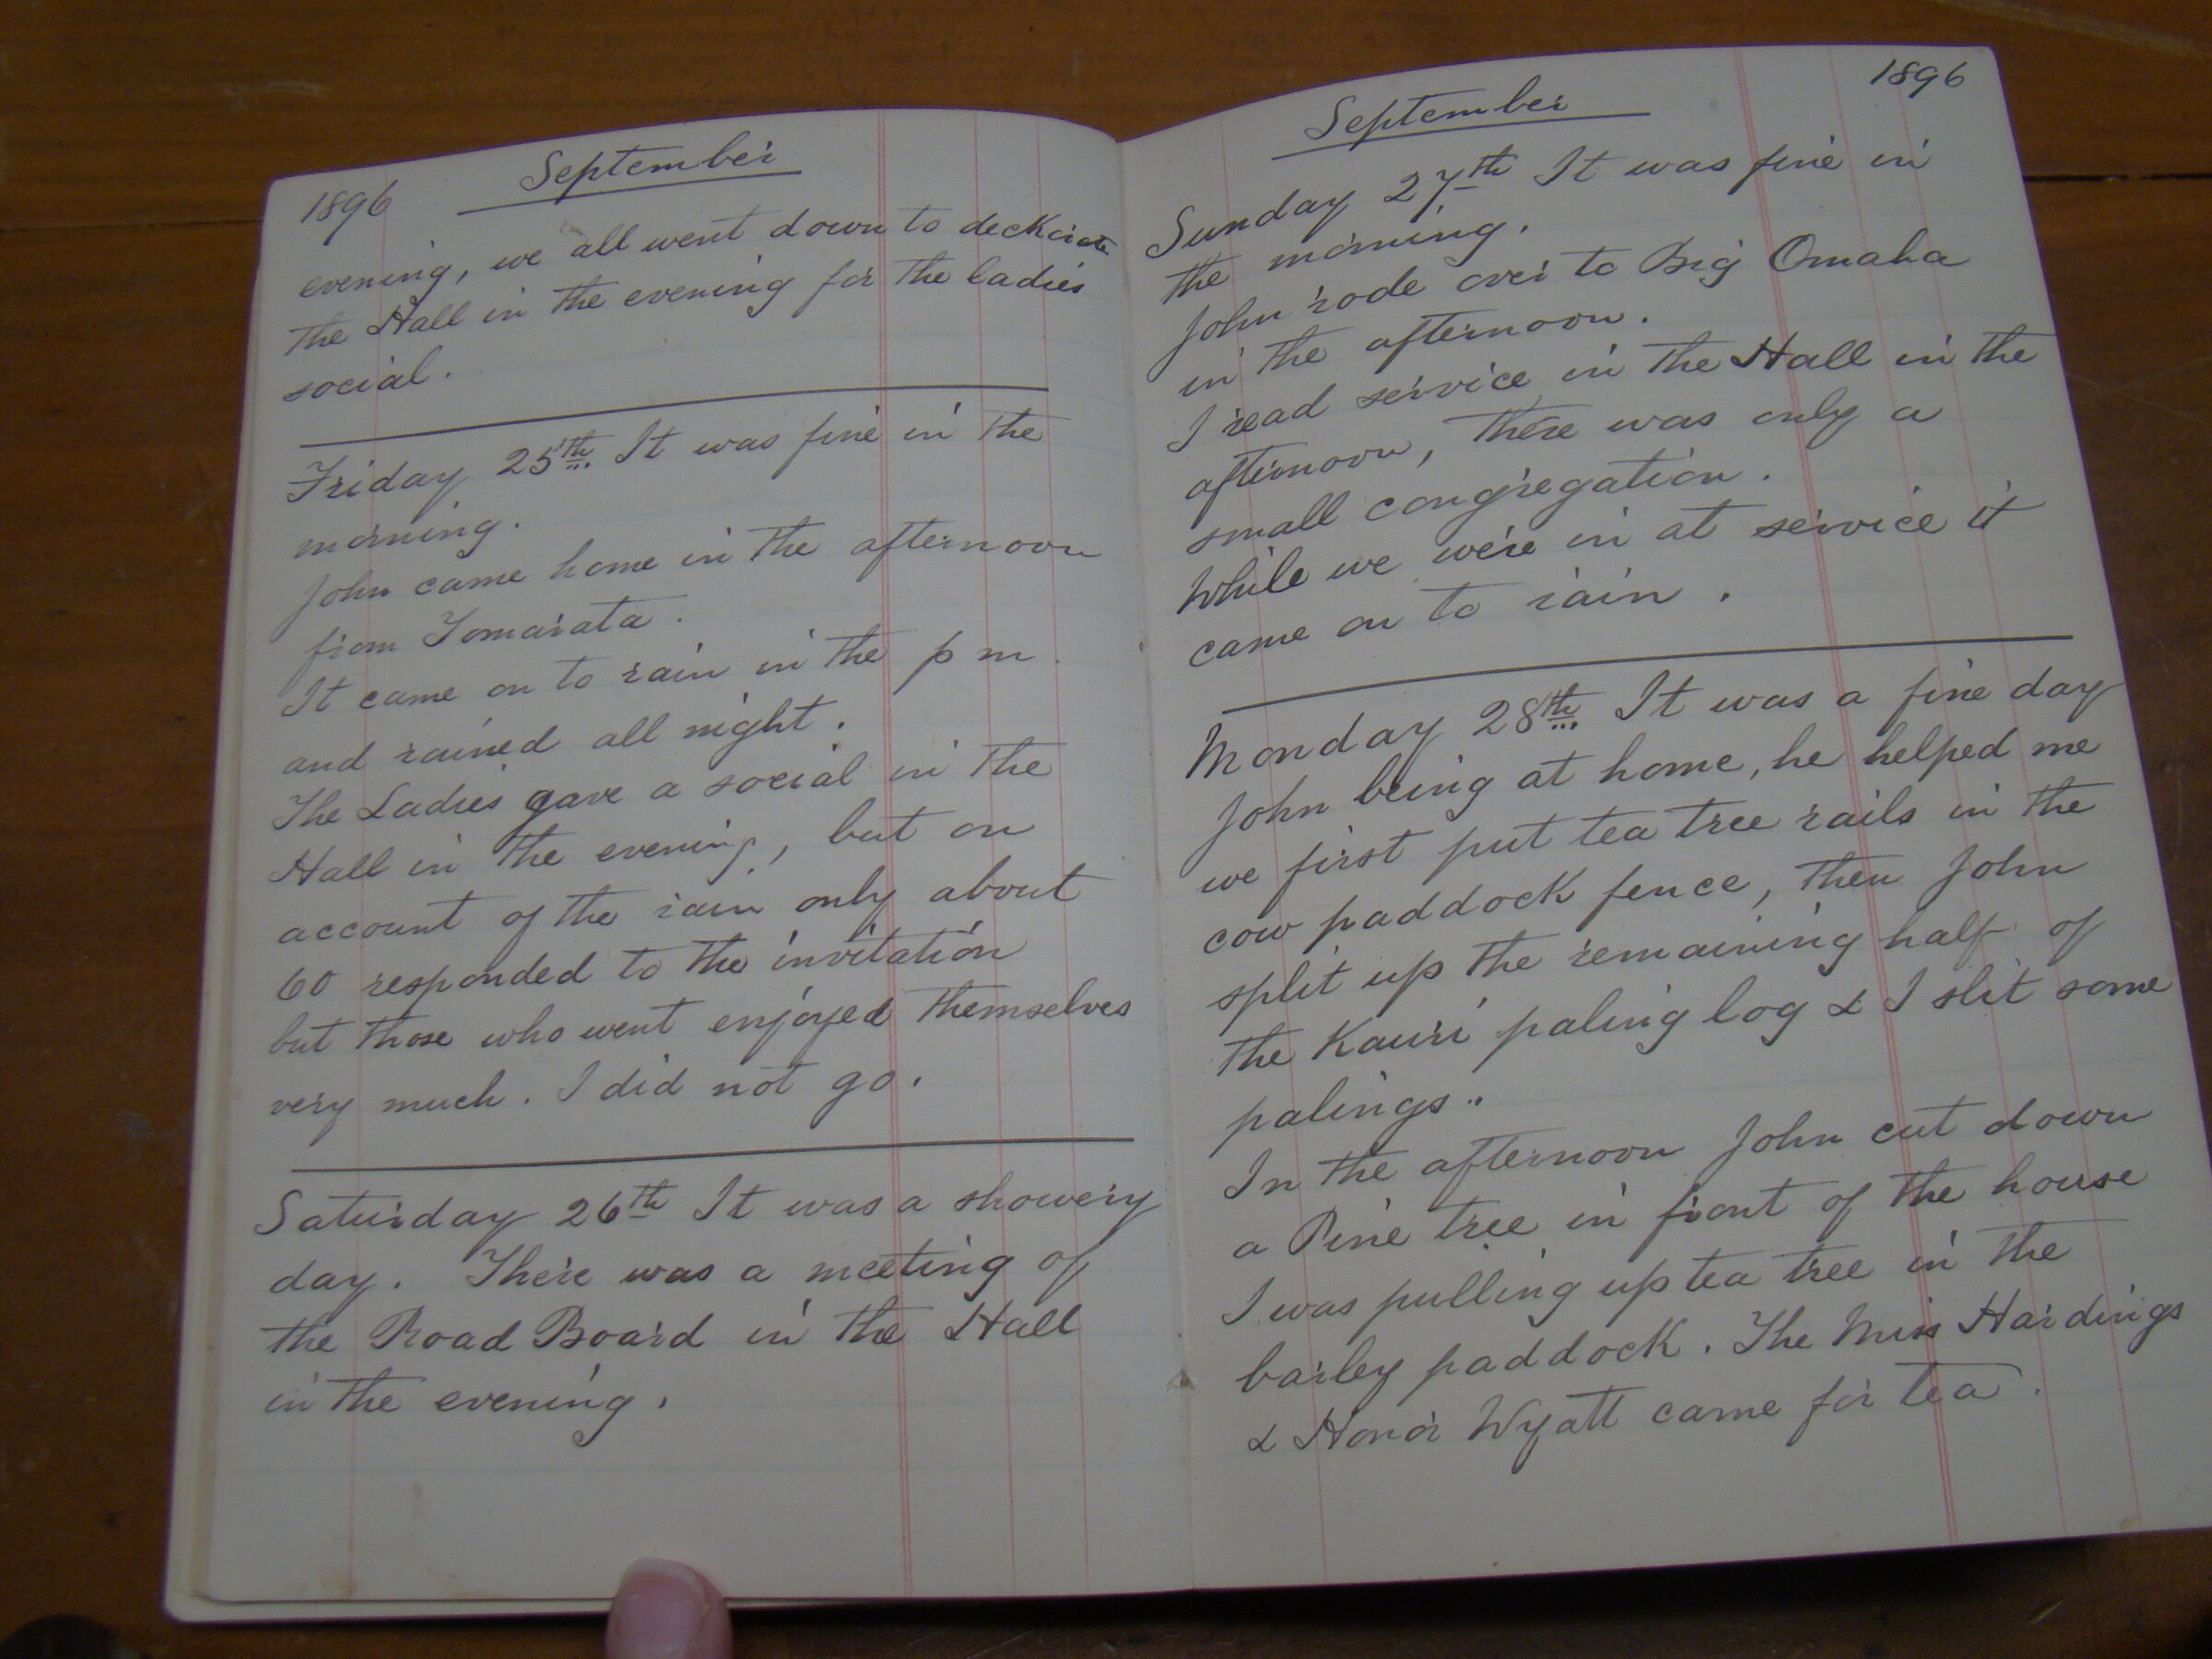 1896 September
evening, we all went down to deckorate
the Hall in the evening for the ladies
social.
Friday 25th. It was fine in the
morning.
John came home in the afternoon
from Tomarata.
It came on to rain in the p m.
and rained all night.
The Ladies gave a social in the
Hall in the evening, but on
account of the rain only about
60 responded to the invitation
but those who went enjoyed themselves
very much. I did not go.
Saturday 26th It was a showery
day. There was a meeting of
the Road Board in the Hall
in the evening.
September 1896
Sunday 27th It was fine in
the morning.
John rode over to Big Omaha
in the afternoon.
I read service in the Hall in the
afternoon, there was only a
small congregation.
While we were in at service it
came on to rain.
Monday 28th. It was a fine day
John being at home, he helped me
we first put tea tree rails in the
cow paddock fence, then John
split up the remaining half of
the Kauri paling log & I slit some
palings..
In the afternoon John cut down
a Pine tree in front of the house
I was pulling up tea tree in the
barley paddock. The Miss Hardings
& Honor Wyatt came for tea.